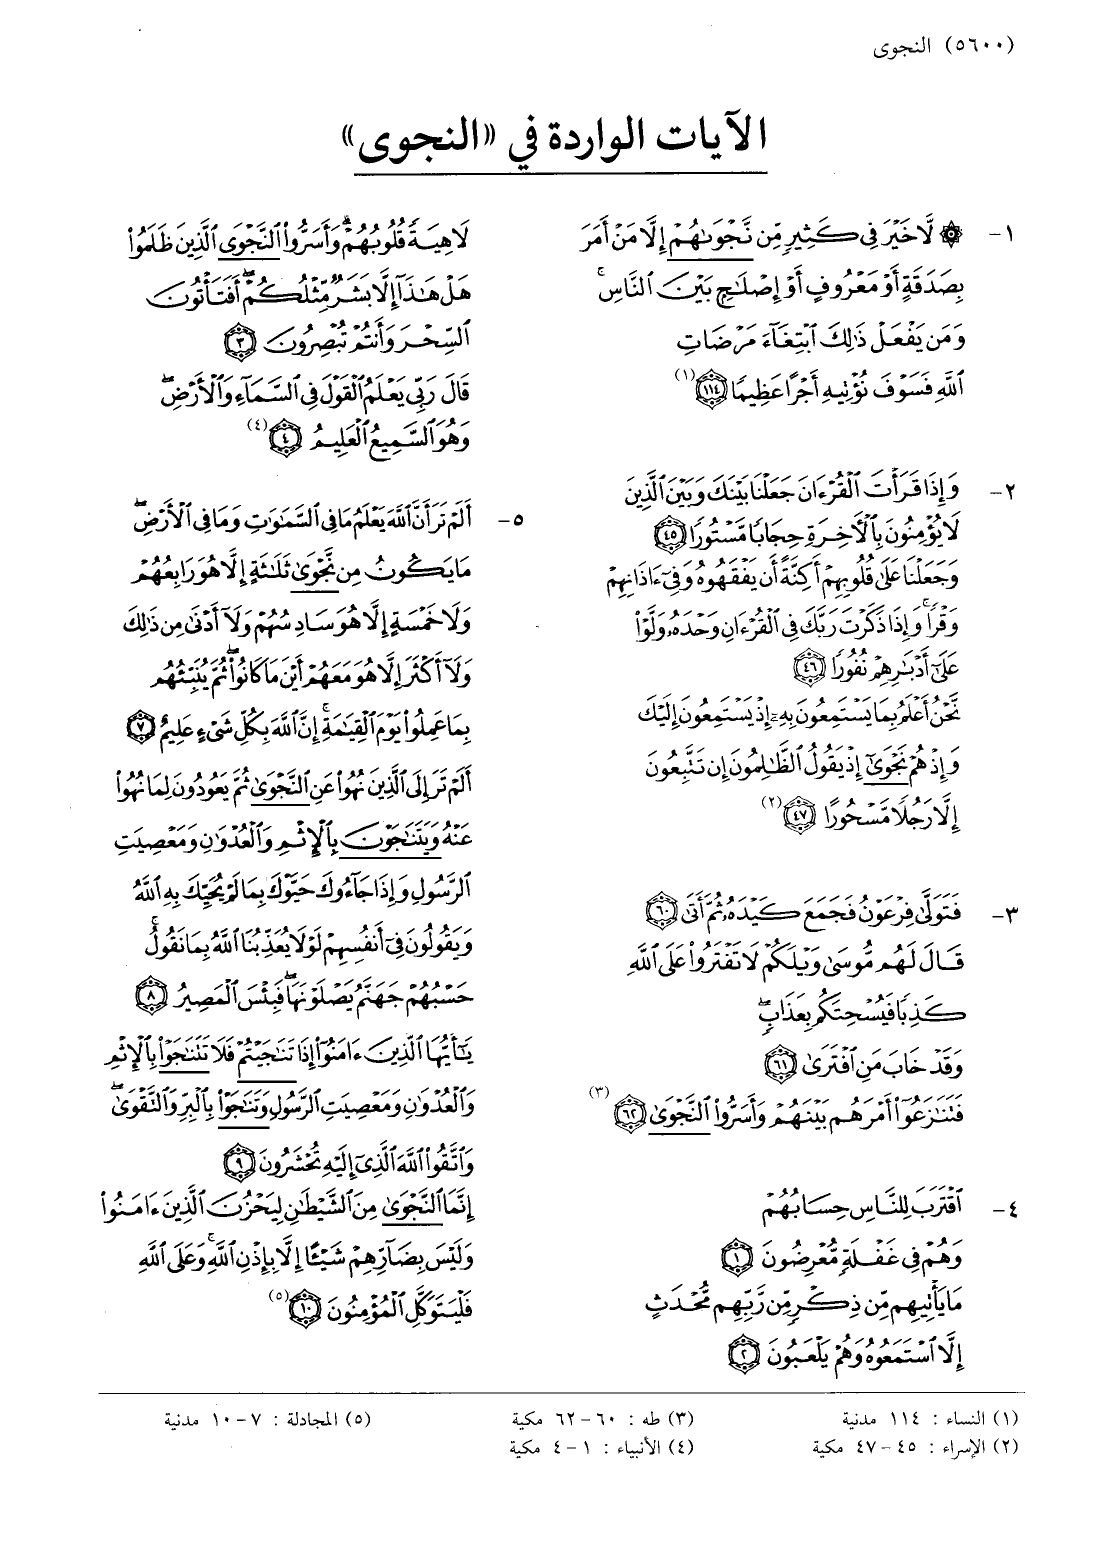 (٥٦٠٠) النجوى
الآيات الواردة في «النجوى»
١- ۞ لَّا خَيْرَ فِى كَثِيرٍ مِّن نَّجْوَىٰهُمْ إِلَّا مَنْ أَمَرَ
بِصَدَقَةٍ أَوْ مَعْرُوفٍ أَوْ إِصْلَٰحٍ بَيْنَ ٱلنَّاسِ ۚ
وَمَن يَفْعَلْ ذَٰلِكَ ٱبْتِغَآءَ مَرْضَاتِ
ٱللَّهِ فَسَوْفَ نُؤْتِيهِ أَجْرًا عَظِيمًا ﴿١١٤﴾ (١)
٢- وَإِذَا قَرَأْتَ ٱلْقُرْءَانَ جَعَلْنَا بَيْنَكَ وَبَيْنَ ٱلَّذِينَ
لَا يُؤْمِنُونَ بِٱلْأَخِرَةِ حِجَابًا مَّسْتُورًا ﴿٤٥﴾
وَجَعَلْنَا عَلَىٰ قُلُوبِهِمْ أَكِنَّةً أَن يَفْقَهُوهُ وَفِىٓ ءَاذَانِهِمْ
وَقْرًا ۚ وَإِذَا ذَكَرْتَ رَبَّكَ فِى ٱلْقُرْءَانِ وَحْدَهُۥ وَلَّوْا۟
عَلَىٰٓ أَدْبَٰرِهِمْ نُفُورًا ﴿٤٦﴾
نَّحْنُ أَعْلَمُ بِمَا يَسْتَمِعُونَ بِهِۦٓ إِذْ يَسْتَمِعُونَ إِلَيْكَ
وَإِذْ هُمْ نَجْوَىٰٓ إِذْ يَقُولُ ٱلظَّٰلِمُونَ إِن تَتَّبِعُونَ
إِلَّا رَجُلًا مَّسْحُورًا ﴿٤٧﴾ (٢)
٣- فَتَوَلَّىٰ فِرْعَوْنُ فَجَمَعَ كَيْدَهُۥ ثُمَّ أَتَىٰ ﴿٦٠﴾
قَالَ لَهُم مُّوسَىٰ وَيْلَكُمْ لَا تَفْتَرُوا۟ عَلَى ٱللَّهِ
كَذِبًا فَيُسْحِتَكُم بِعَذَابٍ ۖ
وَقَدْ خَابَ مَنِ ٱفْتَرَىٰ ﴿٦١﴾
فَتَنَٰزَعُوٓا۟ أَمْرَهُم بَيْنَهُمْ وَأَسَرُّوا۟ ٱلنَّجْوَىٰ ﴿٦٢﴾ (٣)
٤- ٱقْتَرَبَ لِلنَّاسِ حِسَابُهُمْ
وَهُمْ فِى غَفْلَةٍ مُّعْرِضُونَ ﴿١﴾
مَا يَأْتِيهِم مِّن ذِكْرٍ مِّن رَّبِّهِم مُّحْدَثٍ
إِلَّا ٱسْتَمَعُوهُ وَهُمْ يَلْعَبُونَ ﴿٢﴾
لَاهِيَةً قُلُوبُهُمْ ۗ وَأَسَرُّوا۟ ٱلنَّجْوَى ٱلَّذِينَ ظَلَمُوا۟
هَلْ هَٰذَآ إِلَّا بَشَرٌ مِّثْلُكُمْ ۖ أَفَتَأْتُونَ
ٱلسِّحْرَ وَأَنتُمْ تُبْصِرُونَ ﴿٣﴾
قَالَ رَبِّى يَعْلَمُ ٱلْقَوْلَ فِى ٱلسَّمَآءِ وَٱلْأَرْضِ ۖ
وَهُوَ ٱلسَّمِيعُ ٱلْعَلِيمُ ﴿٤﴾ (٤)
٥- أَلَمْ تَرَ أَنَّ ٱللَّهَ يَعْلَمُ مَا فِى ٱلسَّمَٰوَٰتِ وَمَا فِى ٱلْأَرْضِ ۖ
مَا يَكُونُ مِن نَّجْوَىٰ ثَلَٰثَةٍ إِلَّا هُوَ رَابِعُهُمْ
وَلَا خَمْسَةٍ إِلَّا هُوَ سَادِسُهُمْ وَلَآ أَدْنَىٰ مِن ذَٰلِكَ
وَلَآ أَكْثَرَ إِلَّا هُوَ مَعَهُمْ أَيْنَ مَا كَانُوا۟ ۖ ثُمَّ يُنَبِّئُهُم
بِمَا عَمِلُوا۟ يَوْمَ ٱلْقِيَٰمَةِ ۚ إِنَّ ٱللَّهَ بِكُلِّ شَىْءٍ عَلِيمٌ ﴿٧﴾
أَلَمْ تَرَ إِلَى ٱلَّذِينَ نُهُوا۟ عَنِ ٱلنَّجْوَىٰ ثُمَّ يَعُودُونَ لِمَا نُهُوا۟
عَنْهُ وَيَتَنَٰجَوْنَ بِٱلْإِثْمِ وَٱلْعُدْوَٰنِ وَمَعْصِيَتِ
ٱلرَّسُولِ وَإِذَا جَآءُوكَ حَيَّوْكَ بِمَا لَمْ يُحَيِّكَ بِهِ ٱللَّهُ
وَيَقُولُونَ فِىٓ أَنفُسِهِمْ لَوْلَا يُعَذِّبُنَا ٱللَّهُ بِمَا نَقُولُ ۚ
حَسْبُهُمْ جَهَنَّمُ يَصْلَوْنَهَا ۖ فَبِئْسَ ٱلْمَصِيرُ ﴿٨﴾
يَٰٓأَيُّهَا ٱلَّذِينَ ءَامَنُوٓا۟ إِذَا تَنَٰجَيْتُمْ فَلَا تَتَنَٰجَوْا۟ بِٱلْإِثْمِ
وَٱلْعُدْوَٰنِ وَمَعْصِيَتِ ٱلرَّسُولِ وَتَنَٰجَوْا۟ بِٱلْبِرِّ وَٱلتَّقْوَىٰ ۖ
وَٱتَّقُوا۟ ٱللَّهَ ٱلَّذِىٓ إِلَيْهِ تُحْشَرُونَ ﴿٩﴾
إِنَّمَا ٱلنَّجْوَىٰ مِنَ ٱلشَّيْطَٰنِ لِيَحْزُنَ ٱلَّذِينَ ءَامَنُوا۟
وَلَيْسَ بِضَآرِّهِمْ شَيْـًٔا إِلَّا بِإِذْنِ ٱللَّهِ ۚ وَعَلَى ٱللَّهِ
فَلْيَتَوَكَّلِ ٱلْمُؤْمِنُونَ ﴿١٠﴾ (٥)
(١) النساء : ١١٤ مدنية
(٢) الإسراء : ٤٥-٤٧ مكية
(٣) طه : ٦٠-٦٢ مكية
(٤) الأنبياء : ١-٤ مكية
(٥) المجادلة : ٧-١٠ مدنية